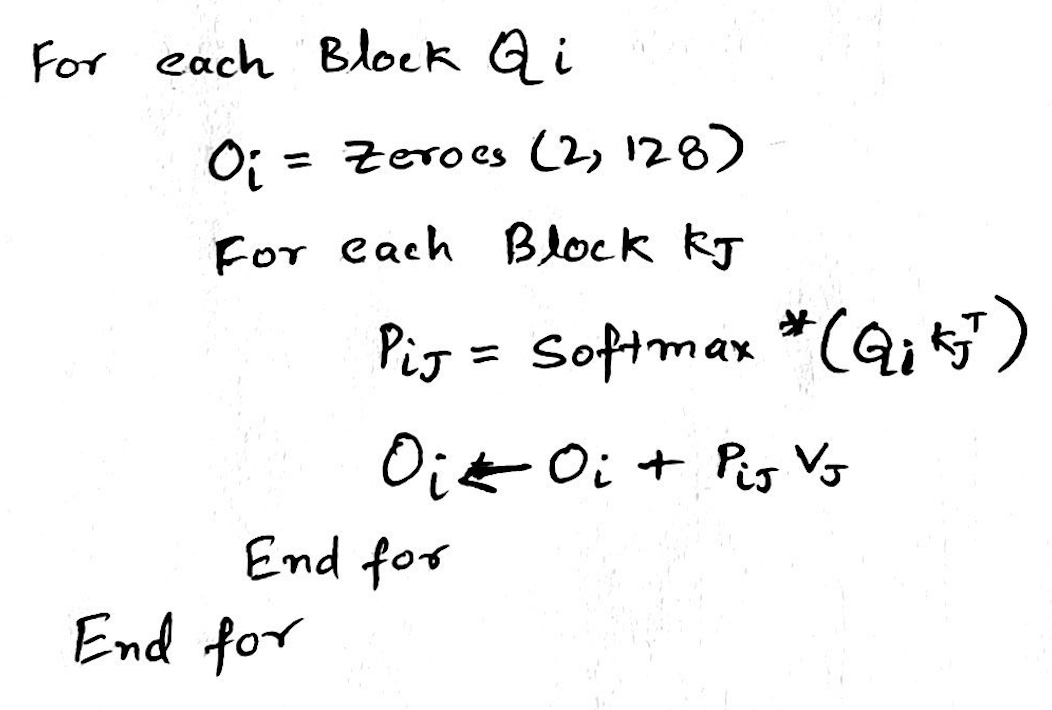 For each Block Qi
Oi = Zeroes (2, 128)
For each Block KJ
PiJ = Softmax *(Qi KJᵀ)
Oi ← Oi + PiJ VJ
End for
End for